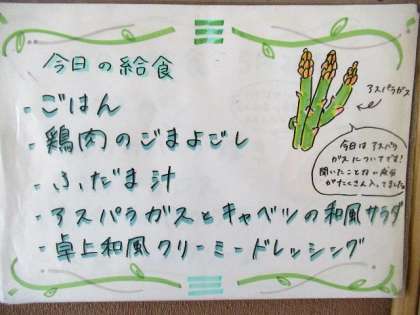 今日の給食
- ごはん
- 鶏肉のごまよごし
- ふだま汁
- アスパラガスとキャベツの和風サラダ
- 卓上和風クリーミードレッシング
アスパラガス
今日はアスパラ
ガスについてです!
聞いたことない成分
がたくさん入ってました。